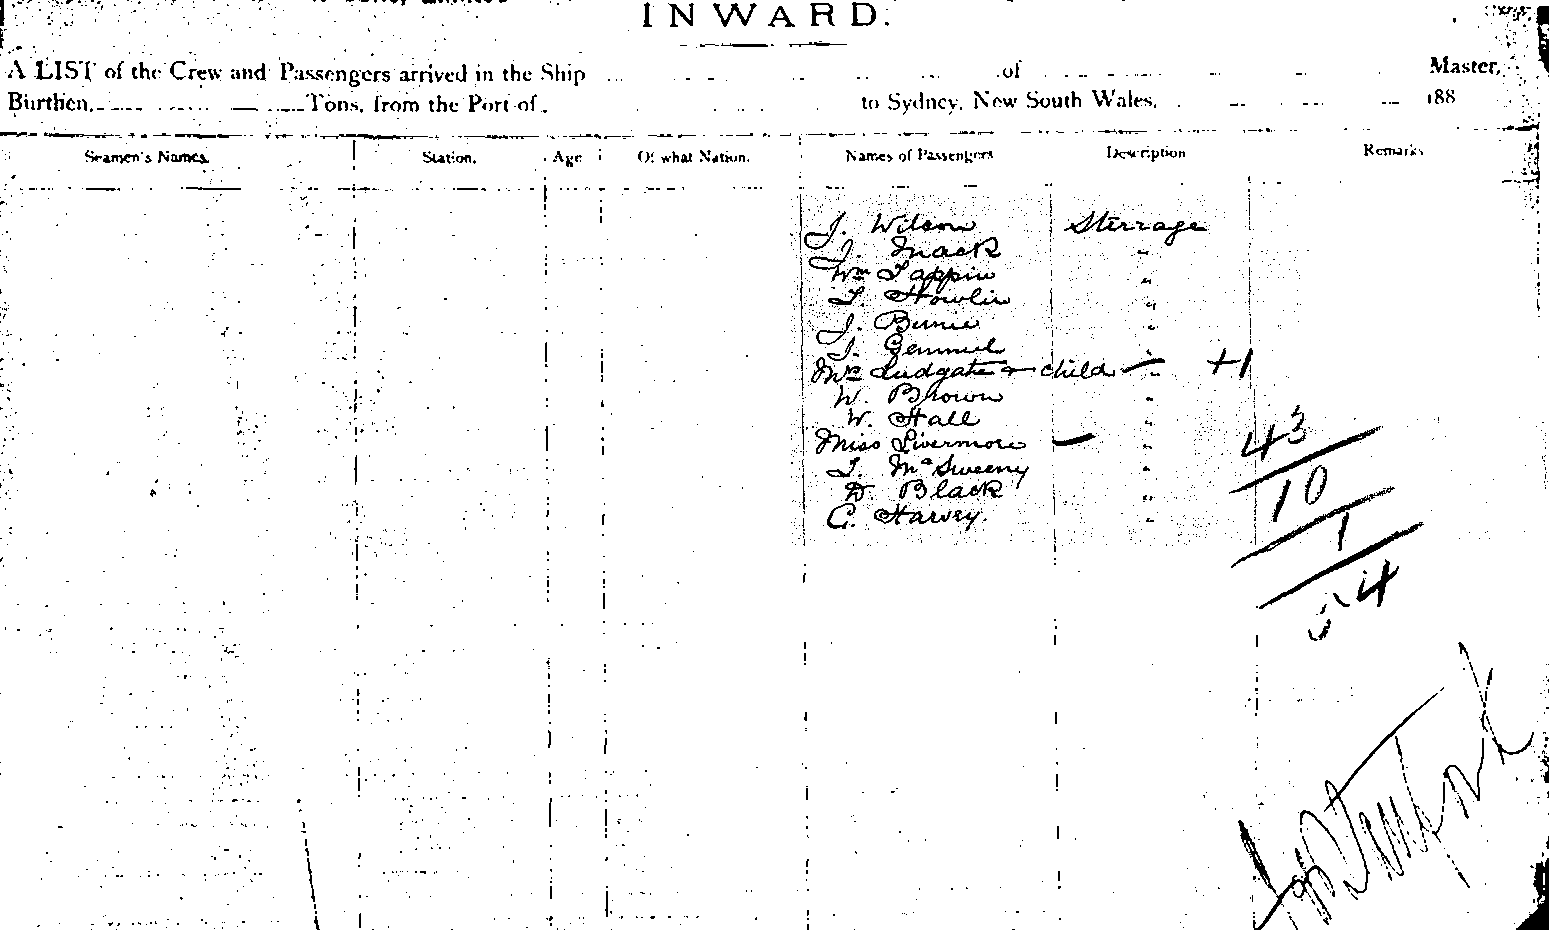 INWARD.
A LIST of the Crew and Passengers arrived in the Ship of Master,
Burthen, Tons, from the Port of to Sydney, New South Wales, 188
Seamen's Names. Station. Age Of what Nation. Names of Passengers Description Remarks
J. Wilson Sterrage
J. Mack "
Wm Tappin "
T. Howlin "
J. "
J. Gemmel "
Mrs Ludgate & child — " +1
W. Brown "
W. Hall "
Miss Livermore — "
T. McSweeny "
D. Black "
C. Harvey. "
43
10
1
54